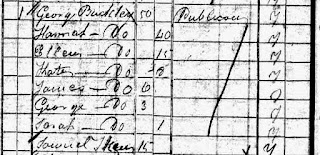 1 George Buckler 50 Publican y
Harriet - Do 40 y
Ellen - Do 15 y
Kate - Do 8 y
James - Do 6 y
George - Do 3 y
Sarah - Do 1 y
Samuel 15 y